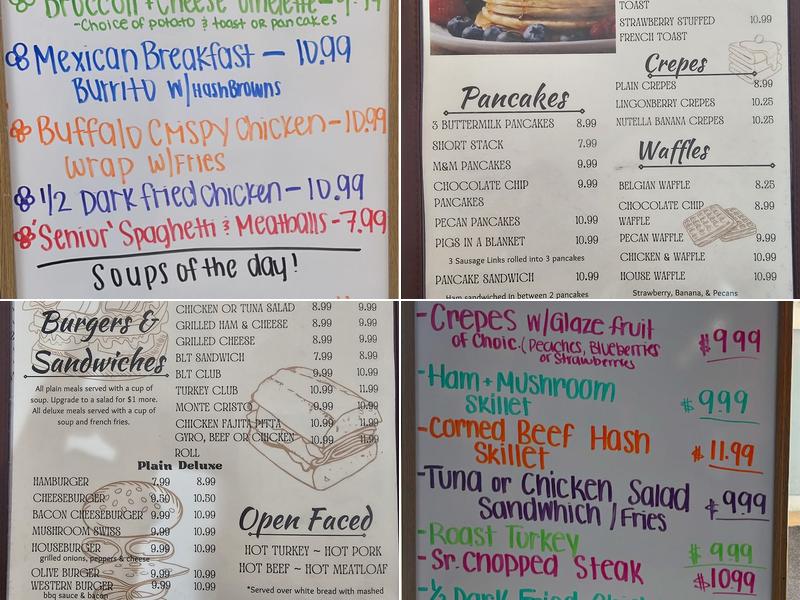 Broccoli + Cheese Omelette - 9.99
-Choice of potato & toast or pancakes
Mexican Breakfast - 10.99
Burrito w/HashBrowns
Buffalo Crispy Chicken - 10.99
Wrap w/Fries
1/2 Dark fried chicken - 10.99
'Senior' Spaghetti & Meatballs - 7.99
Soups of the day!
TOAST
STRAWBERRY STUFFED 10.99
FRENCH TOAST
Crepes
PLAIN CREPES 8.99
LINGONBERRY CREPES 10.25
NUTELLA BANANA CREPES 10.25
Pancakes
3 BUTTERMILK PANCAKES 8.99
SHORT STACK 7.99
M&M PANCAKES 9.99
CHOCOLATE CHIP 9.99
PANCAKES
PECAN PANCAKES 10.99
PIGS IN A BLANKET 10.99
3 Sausage Links rolled into 3 pancakes
PANCAKE SANDWICH 10.99
Ham sandwiched in between 2 pancakes
Waffles
BELGIAN WAFFLE 8.25
CHOCOLATE CHIP 8.99
WAFFLE
PECAN WAFFLE 9.99
CHICKEN & WAFFLE 10.99
HOUSE WAFFLE 10.99
Strawberry, Banana, & Pecans
Burgers &
Sandwiches
All plain meals served with a cup of
soup. Upgrade to a salad for $1 more.
All deluxe meals served with a cup of
soup and french fries.
CHICKEN OR TUNA SALAD 8.99 9.99
GRILLED HAM & CHEESE 8.99 9.99
GRILLED CHEESE 8.99 9.99
BLT SANDWICH 7.99 8.99
BLT CLUB 9.99 10.99
TURKEY CLUB 10.99 11.99
MONTE CRISTO 9.99 10.99
CHICKEN FAJITA PITTA 10.99 11.99
GYRO, BEEF OR CHICKEN 10.99 11.99
ROLL
Plain Deluxe
HAMBURGER 7.99 8.99
CHEESEBURGER 9.50 10.50
BACON CHEESEBURGER 9.99 10.99
MUSHROOM SWISS 9.99 10.99
HOUSEBURGER 9.99 10.99
grilled onions, peppers & cheese
OLIVE BURGER 9.99 10.99
WESTERN BURGER 9.99 10.99
bbq sauce & bacon
Open Faced
HOT TURKEY ~ HOT PORK
HOT BEEF ~ HOT MEATLOAF
*Served over white bread with mashed
-Crepes w/Glaze fruit $9.99
of Choic.(Peaches, Blueberries
or Strawberries
-Ham + Mushroom $9.99
Skillet
-Corned Beef Hash $11.99
Skillet
-Tuna or Chicken Salad $9.99
Sandwhich / Fries
-Roast Turkey $9.99
-Sr. Chopped Steak $10.99
-1/2 Dark Fried